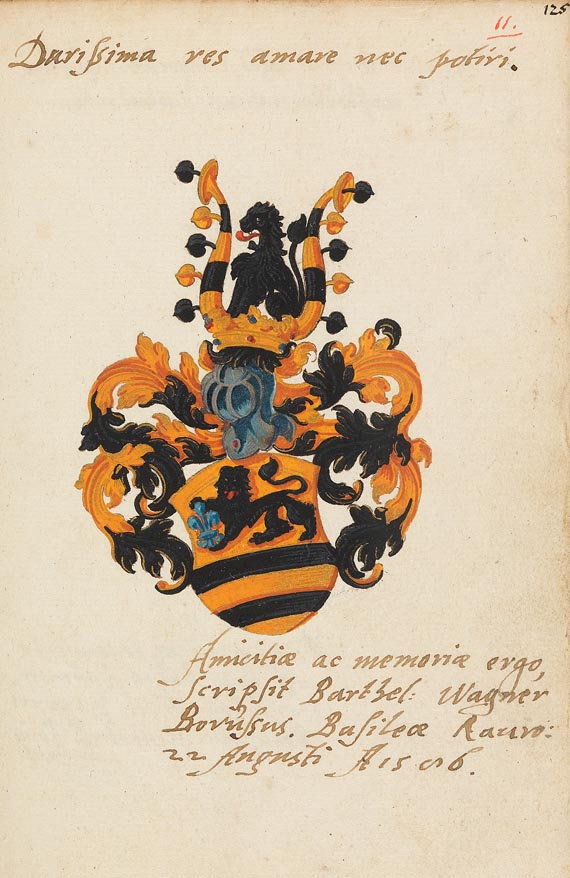 125
11.
Durissima res amare nec potiri.
Amicitiæ ac memoriæ ergo,
scripsit Barthel: Wagner
Borussus. Basileæ Rauro:
22 Augusti A